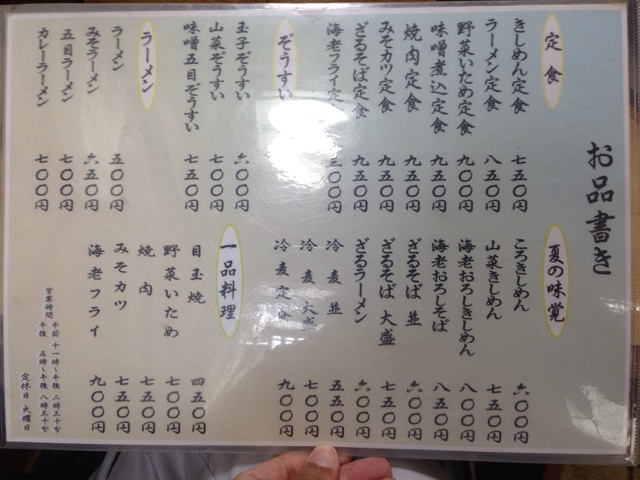 お品書き
定食
きしめん定食 七五〇円
ラーメン定食 八五〇円
野菜いため定食 九〇〇円
味噌煮込定食 九五〇円
焼肉定食 九五〇円
みそカツ定食 九五〇円
ざるそば定食 九五〇円
海老フライ定
ぞうすい
玉子ぞうすい 六〇〇円
山菜ぞうすい 七〇〇円
味噌五目ぞうすい 七五〇円
ラーメン
ラーメン 五〇〇円
みそラーメン 六五〇円
五目ラーメン 七〇〇円
カレーラーメン 七〇〇円
夏の味覚
ころきしめん 六〇〇円
山菜きしめん 七五〇円
海老おろしきしめん 八〇〇円
海老おろしそば 八五〇円
ざるそば 並 六〇〇円
ざるそば 大盛 七五〇円
ざるラーメン 六〇〇円
冷麦 並 五五〇円
冷麦 大盛 七〇〇円
冷麦定食 九〇〇円
一品料理
目玉焼 四五〇円
野菜いため 七〇〇円
焼肉 七五〇円
みそカツ 七五〇円
海老フライ 九〇〇円
営業時間 午前 十一時〜午後 二時三十分
午後 五時〜午後 八時三十分
定休日 火曜日